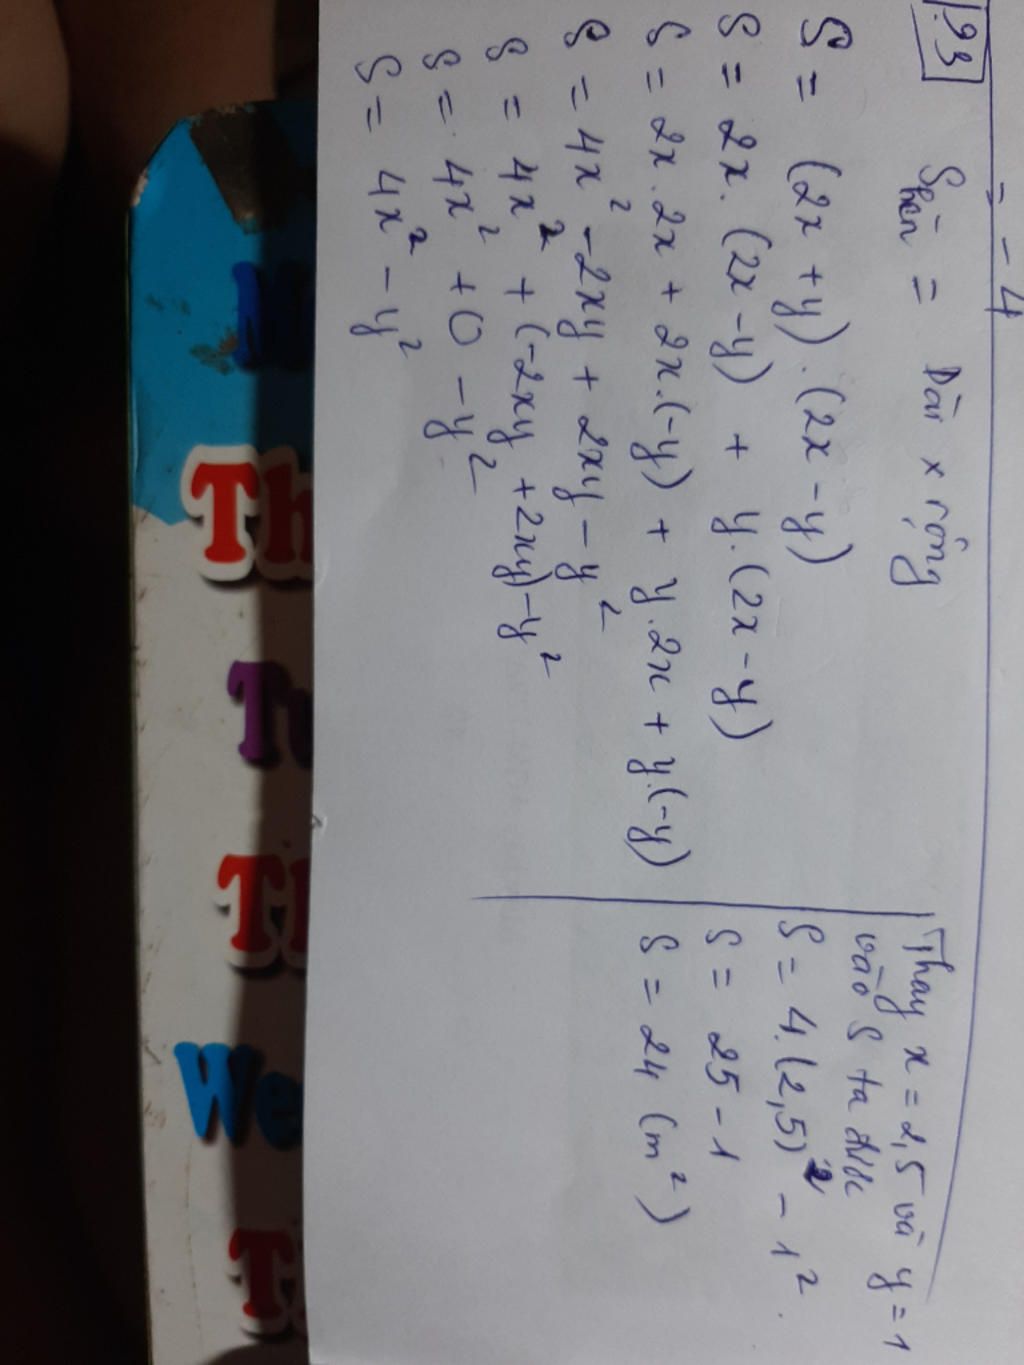 = -4
1.93
S hcn = Dài x rộng
S = (2x + y) . (2x - y)
S = 2x. (2x - y) + y. (2x - y)
S = 2x . 2x + 2x.(-y) + y.2x + y.(-y)
S = 4x² - 2xy + 2xy - y²
S = 4x² + (-2xy + 2xy) - y²
S = 4x² + 0 - y²
S = 4x² - y²
Thay x = 2,5 và y = 1
vào S ta được
S = 4.(2,5)² - 1²
S = 25 - 1
S = 24 (m²)
Th
We